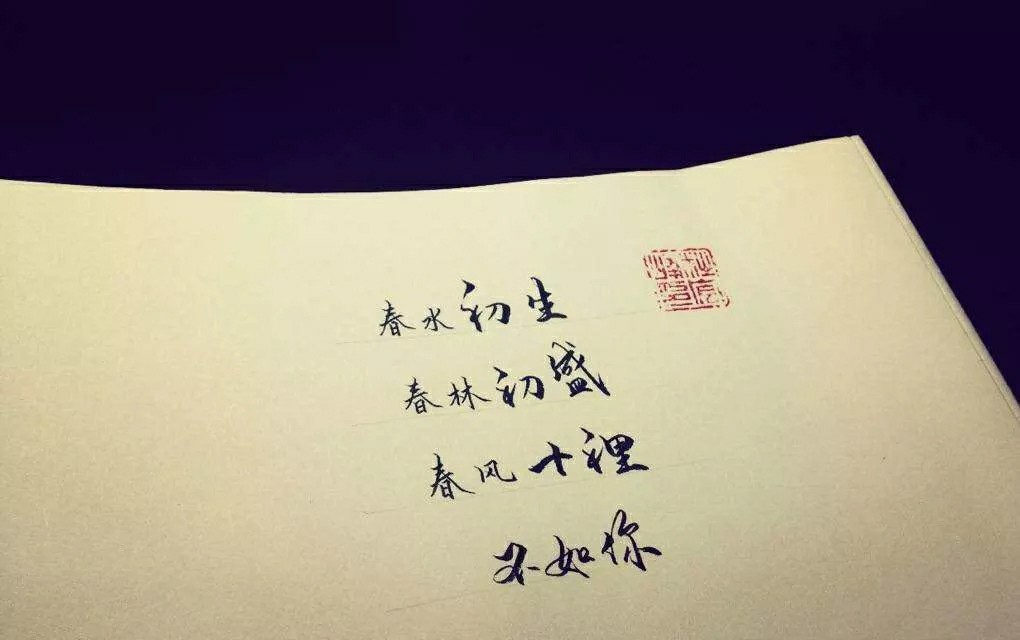 春水初生
春林初盛
春风十裡
不如你